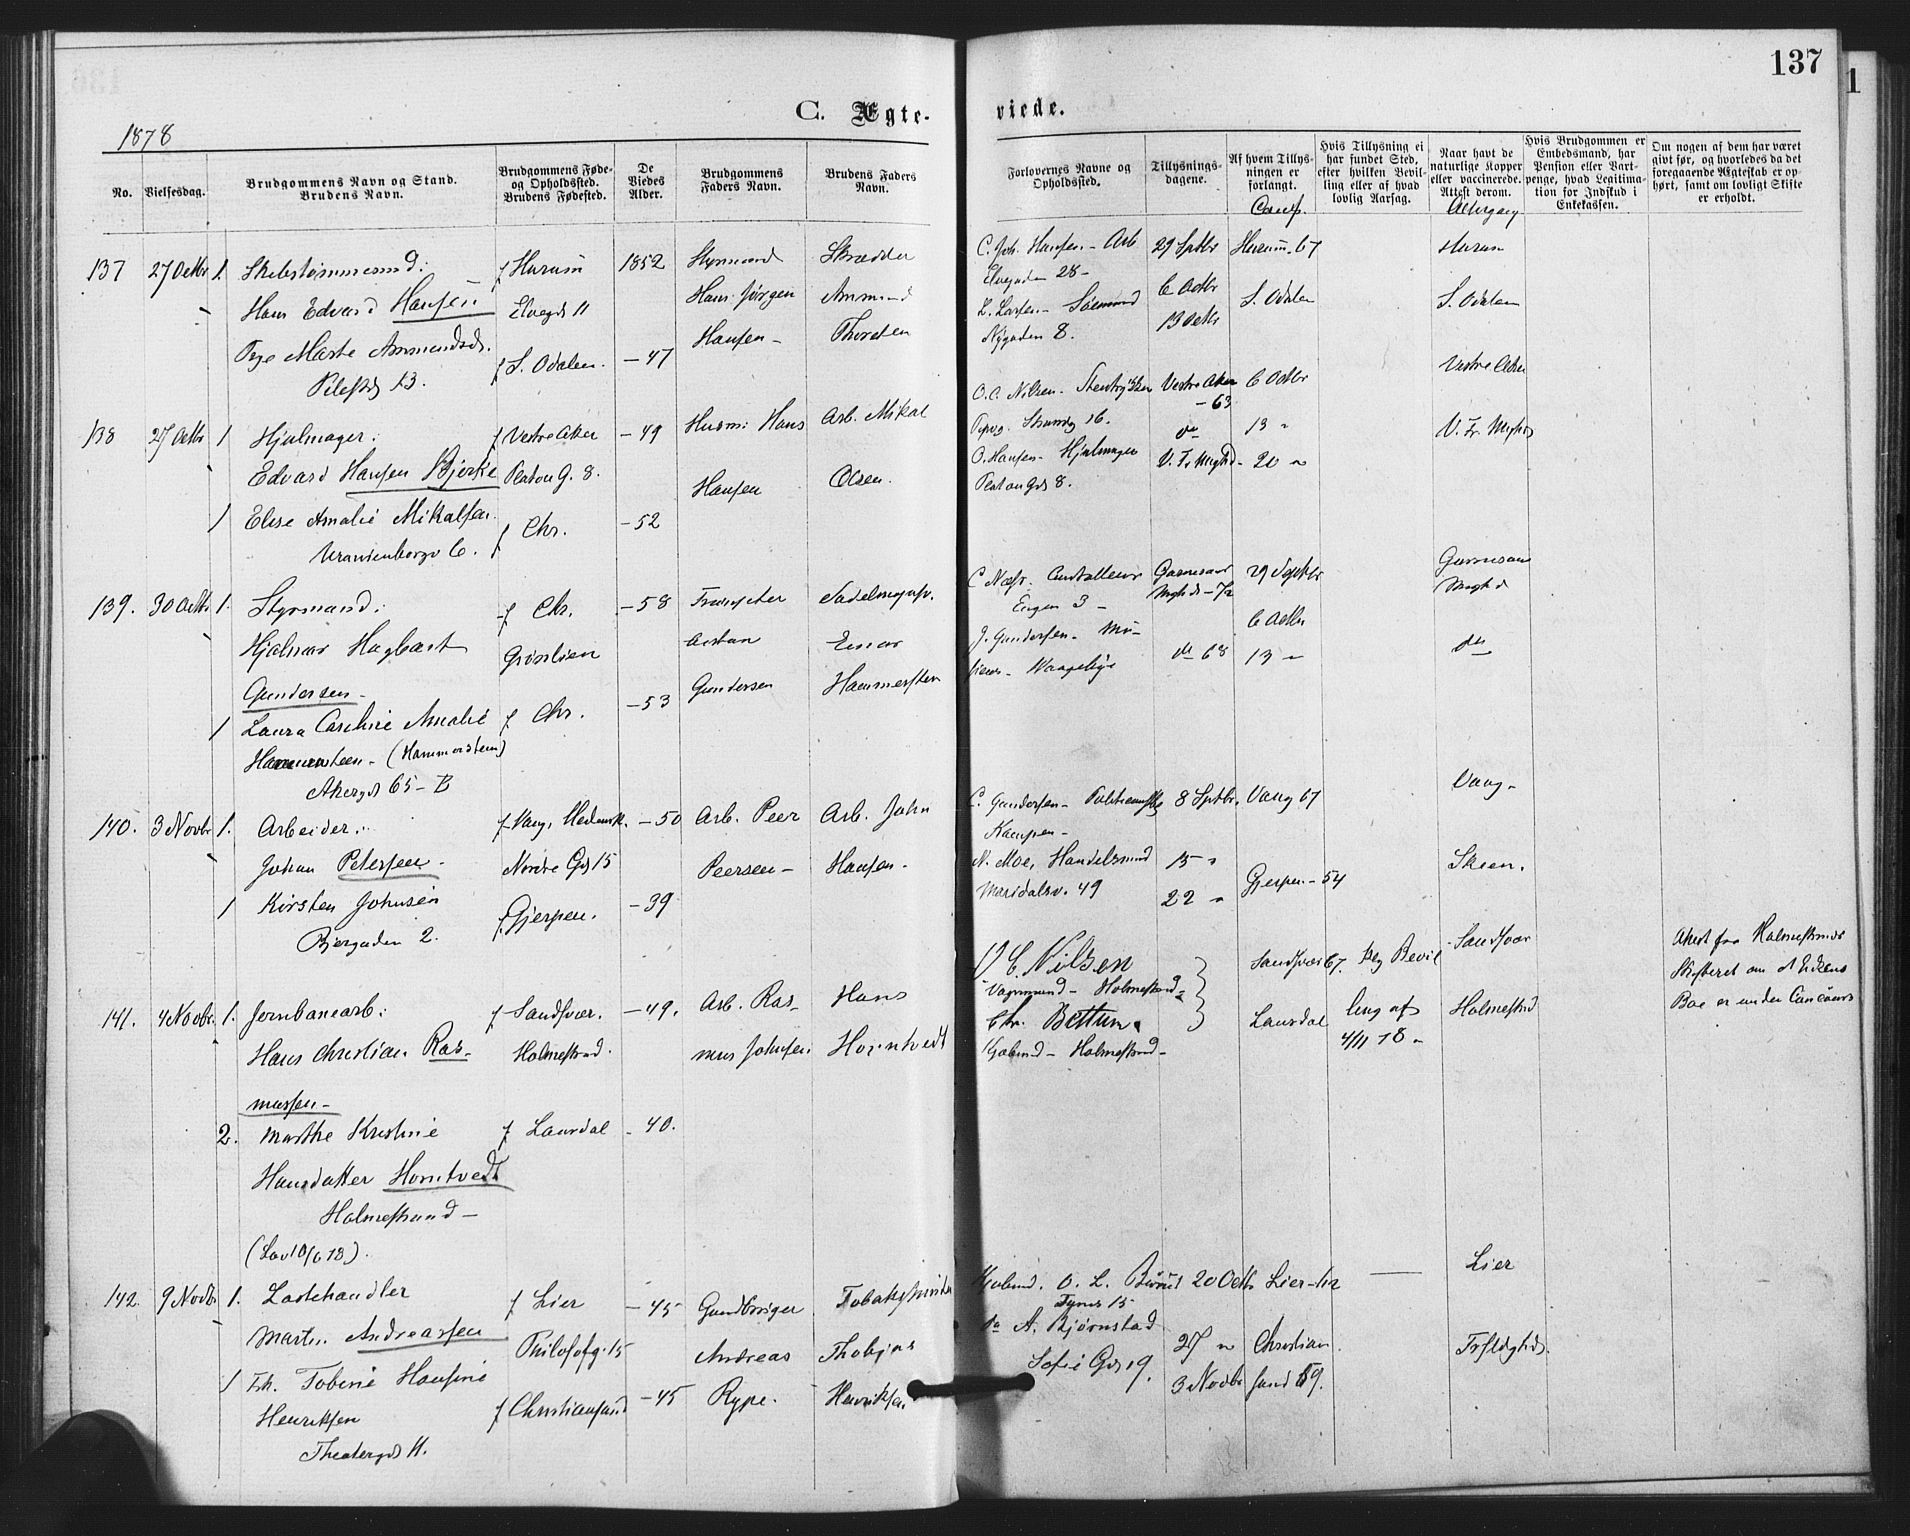 137
1
C. Ægte-
viede.
1878
No.
Vielsesdag.
Brudgommens Navn og Stand.
Brudens Navn.
Brudgommens Føde-
og Opholdssted.
Brudens Fødested.
De
Viedes
Alder.
Brudgommens
Faders Navn.
Brudens Faders
Navn.
Forlovernes Navne og
Opholdssted.
Tillysnings-
dagene.
Af hvem Tillys-
ningen er
forlangt.
Hvis Tillysning ei
har fundet Sted,
efter hvilken Bevil-
ling eller af hvad
lovlig Aarsag.
Naar havt de
naturlige Kopper
eller vaccinerede.
Attest derom.
Hvis Brudgommen er
Embedsmand, har
Pension eller Vart-
penge, hvad Legitima-
tion for Indskud i
Enkekassen.
Om nogen af dem har været
givt før, og hvorledes da det
foregaaende Ægteskab er op-
hørt, samt om lovligt Skifte
er erholdt.
137 27 Octbr 1. f Hurum 1852 Styrmand Skrædder
Hans Edvard Hansen Elvegd 11 Hans Jørgen Ammund
Hansen -
Pige Marte Ammundsd. f S. Odalen. - 47
Pilestd 13.
C. Joh. Hansen - Arb 29 Sptbr Hurum 67 Hurum
Elvegaden 28 -
L. Larsen - Sömand 6 Octbr S. Odalen S. Odalen
Nygaden 8. 13 Octbr
138 27 Octbr 1 Hjulmager: f Vestre Aker - 49 Husm. Hans Arb. Mikal
Edvard Hansen Bjerke Platou G. 8. Hansen Olsen.
1 Elise Amalie Mikalsen f Chr. - 52
Uranienborgv 6.
O. C. Nilsen. Vestre Aker 6 Octbr Vestre Aker
- 63
16. do 13 "
O. Hansen - Hjulmager V. Fr. Mghd - 20 " V. Fr. Mghd
Platou Gd 8.
139. 30 Octbr 1. Styrmand: f Chr. - 58
Hjalmar Hagbart Grönlien Einar
Gundersen - Gundersen Hammersten
1 Laura Caroline Amalie f Chr. - 53
(Hammersteen)
Akersgd 65 - B
C. Næss. Garnisons 29 Septbr Garnisons
Engen 3 - Mghd - 72 Mghd
6 Octbr
J. Gundersen - do 68 13 " do
140. 3 Novbr 1. Arbeider: f Vang, Hedemk. - 50 Arb. Peer Arb. John
Johan Petersen - Nordre Gd 15 Peersen - Hansen -
1 Kirsten Johnsen f Gjerpen. - 39
Bjergaden 2.
C. Gundersen - 8 Sptbr. Vang 67 Vang -
Kampen -
N. Moe, Handelsmd 15 " Gjerpen - 54 Skien.
Maridalsv. 49 22 "
141. 4 Novbr. 1. Jernbanearb: f Sandsvær. - 49. Arb. Ras- Hans
Hans Christian Ras- Holmestrand. mus Johnsen Horntvedt
mussen -
2. Marthe Kristine f Laurdal - 40.
Hansdatter Horntvedt
Holmestrand -
(Lov 10/6 78).
O C. Nilsen Sandsvær 67. Kg Bevil- Sandsvær
Vognmand - Holmestrand
Chr. Bettum. Laurdal ling af Holmestrand
Holmestrand - 4/11 78 -
Attest fra Holmestrands
Skifteret om at Enkens
Boe er under Concours
142. 9 Novbr 1. Lasthandler f Lier - 45 Gaardbruger
Martin Andreassen Philosofg. 15 Andreas Thobias
1 Frk. Tobine Hansine f Christiansand - 45 Rype. Henriksen
Henriksen
Theatergd 11.
O. L. 20 Octbr Lier - 62 Lier
do A. Bjørnstad 27 " Christian-
Sofie Gd 19. 3 Novbr sand 59.